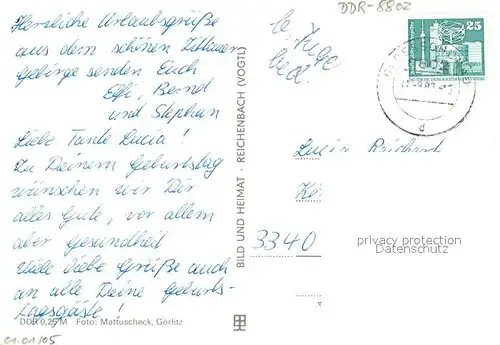 Herzliche Urlaubsgrüße
aus dem schönen Zittauer
Gebirge senden Euch
Elfi, Bernd
und Stephan
Liebe Tante Lucia!
Zu Deinem Geburtstag
wünschen wir Dir
alles Gute, vor allem
aber Gesundheit
Viele liebe Grüße auch
an alle Deine Geburts-
tagsgäste!
DDR 0,25 M Foto: Mattuscheck, Görlitz
01.01/05
BILD UND HEIMAT · REICHENBACH (VOGTL)
DDR-8802
25
d
Lucia
3340
privacy protection
Datenschutz